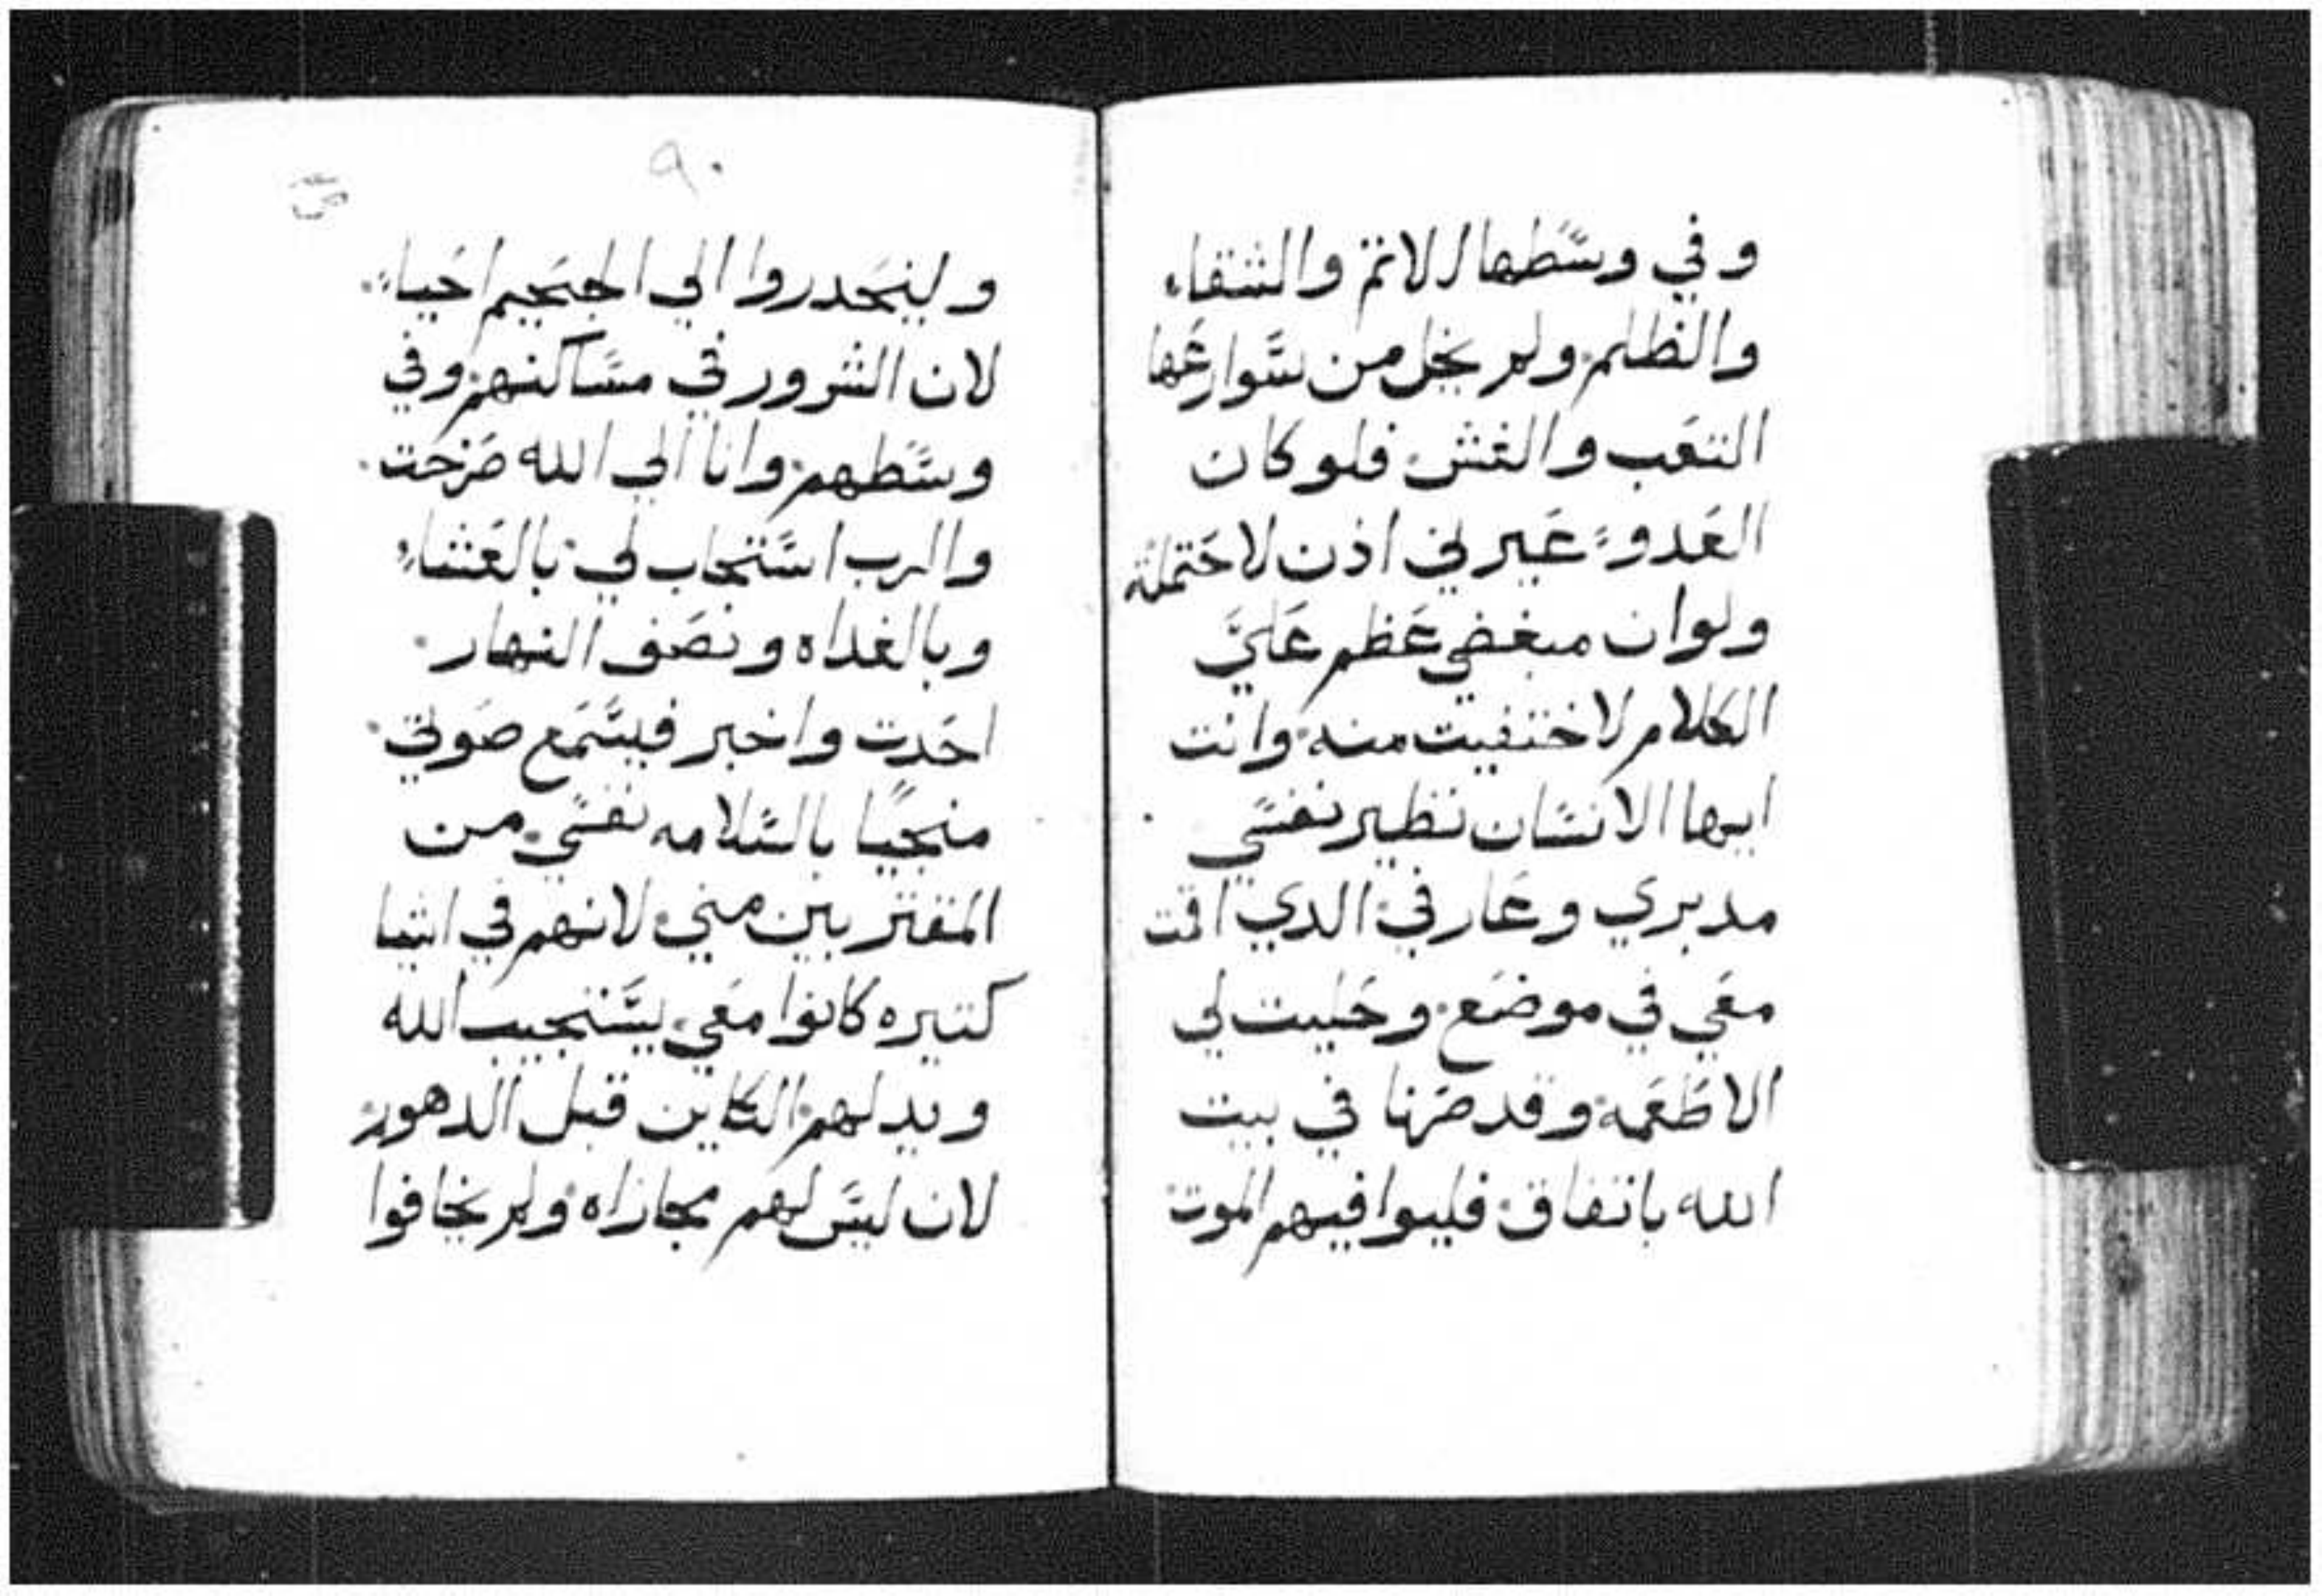 وفي وسطها الاتم والشقاء
والظلم ولم يخل من شوارعها
التعب والغش فلو كان
العدو عيرني اذن لاحتملته
ولو ان مبغضي عظم عليَّ
الكلام لاختفيت منه وانت
ايها الانسان نظير نفسي
مدبري وعارفي الدي اقت
معي في موضع وحليت لي
الاطعمه وقد صرنا في بيت
الله باتفاق فليوافيهم الموت
٩٠
ولينحدروا الي الجحيم احياء
لان الشرور في مساكنهم وفي
وسطهم وانا الي الله صرخت
والرب استجاب لي بالعشاء
وبالغداه ونصف النهار
احدت واخبر فيسمع صوتي
منجيًا بالسلامه نفسي من
المقتربين مني لانهم في اشيا
كتيره كانوا معي يستجيب الله
ويدلهم الكاين قبل الدهور
لان ليس لهم مجازاه ولم يخافوا